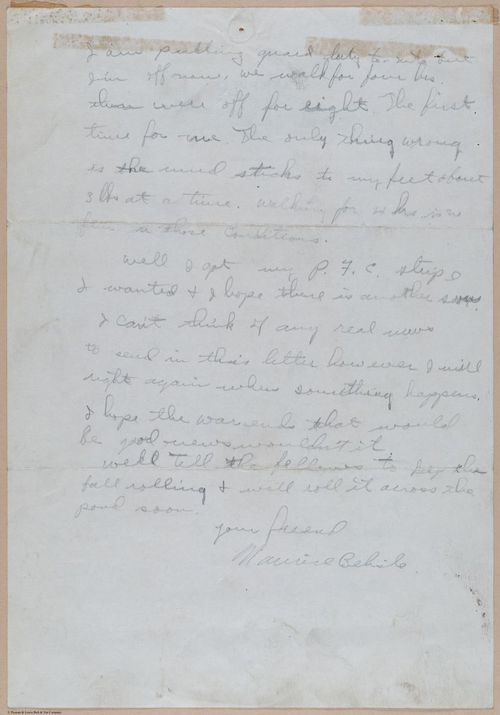 I am pulling guard duty to nite but
I'm off now, we walk for four hrs.
then were off for eight. The first
time for me. The only thing wrong
is the mud sticks to my feet about
3 lbs at a time. Walking for 4 hrs is no
fun in those conditions.
Well I got my P. F. C. stripe
I wanted & I hope there is another soon.
I can't think of any real news
to send in this letter however I will
right again when something happens.
I hope the war ends that would
be good news wouldn't it
well tell the fellows to keep the
ball rolling & will roll it across the
pond soon.
your friend
Maurice